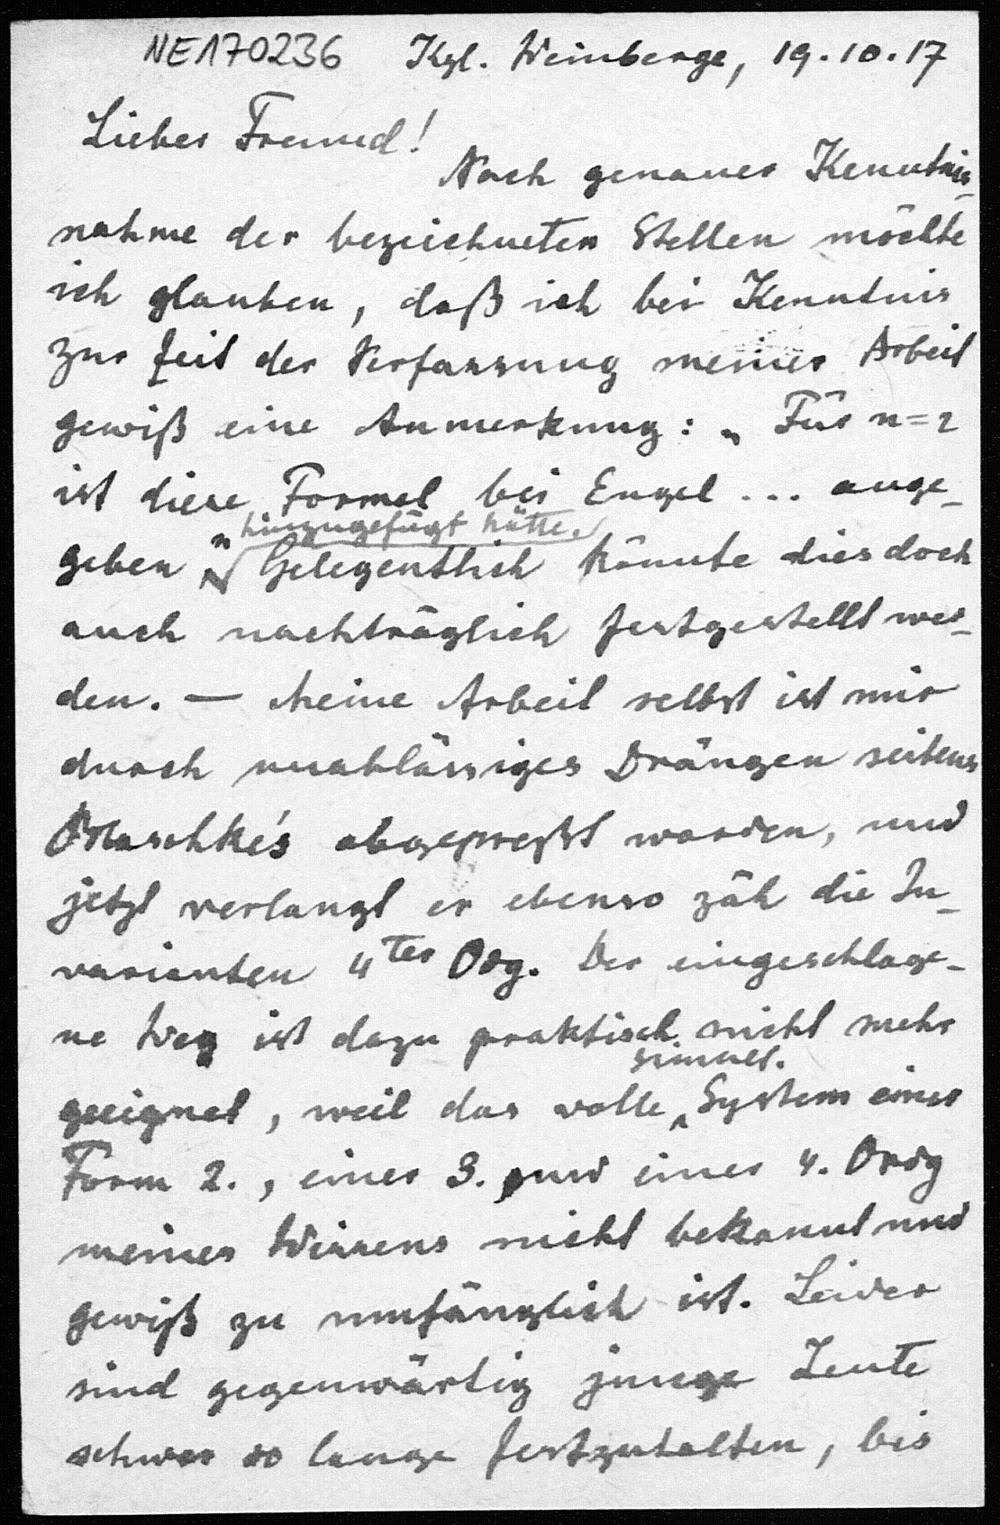 NE170236 Kgl. Weinberge, 19.10.17
Lieber Freund!
Nach genauer Kenntnis-
nahme der bezeichneten Stellen möchte
ich glauben, daß ich bei Kenntnis
zur Zeit der Verfassung meiner Arbeit
gewiß eine Anmerkung: „Für n=2
ist diese Formel bei Engel ... ange-
hinzugefügt hätte.
geben" Gelegentlich könnte dies doch
auch nachträglich festgestellt wer-
den. — Meine Arbeit selbst ist mir
durch unablässiges Drängen seitens
Blaschke's abgepreßt worden, und
jetzt verlangt er ebenso zäh die In-
varianten 4ter Odg. Der eingeschlage-
ne Weg ist dazu praktisch nicht mehr
simult.
geeignet, weil das volle System einer
Form 2., einer 3. und einer 4. Ordg
meines Wissens nicht bekannt und
gewiß zu umfänglich ist. Leider
sind gegenwärtig junge Leute
schwer so lange festzuhalten, bis